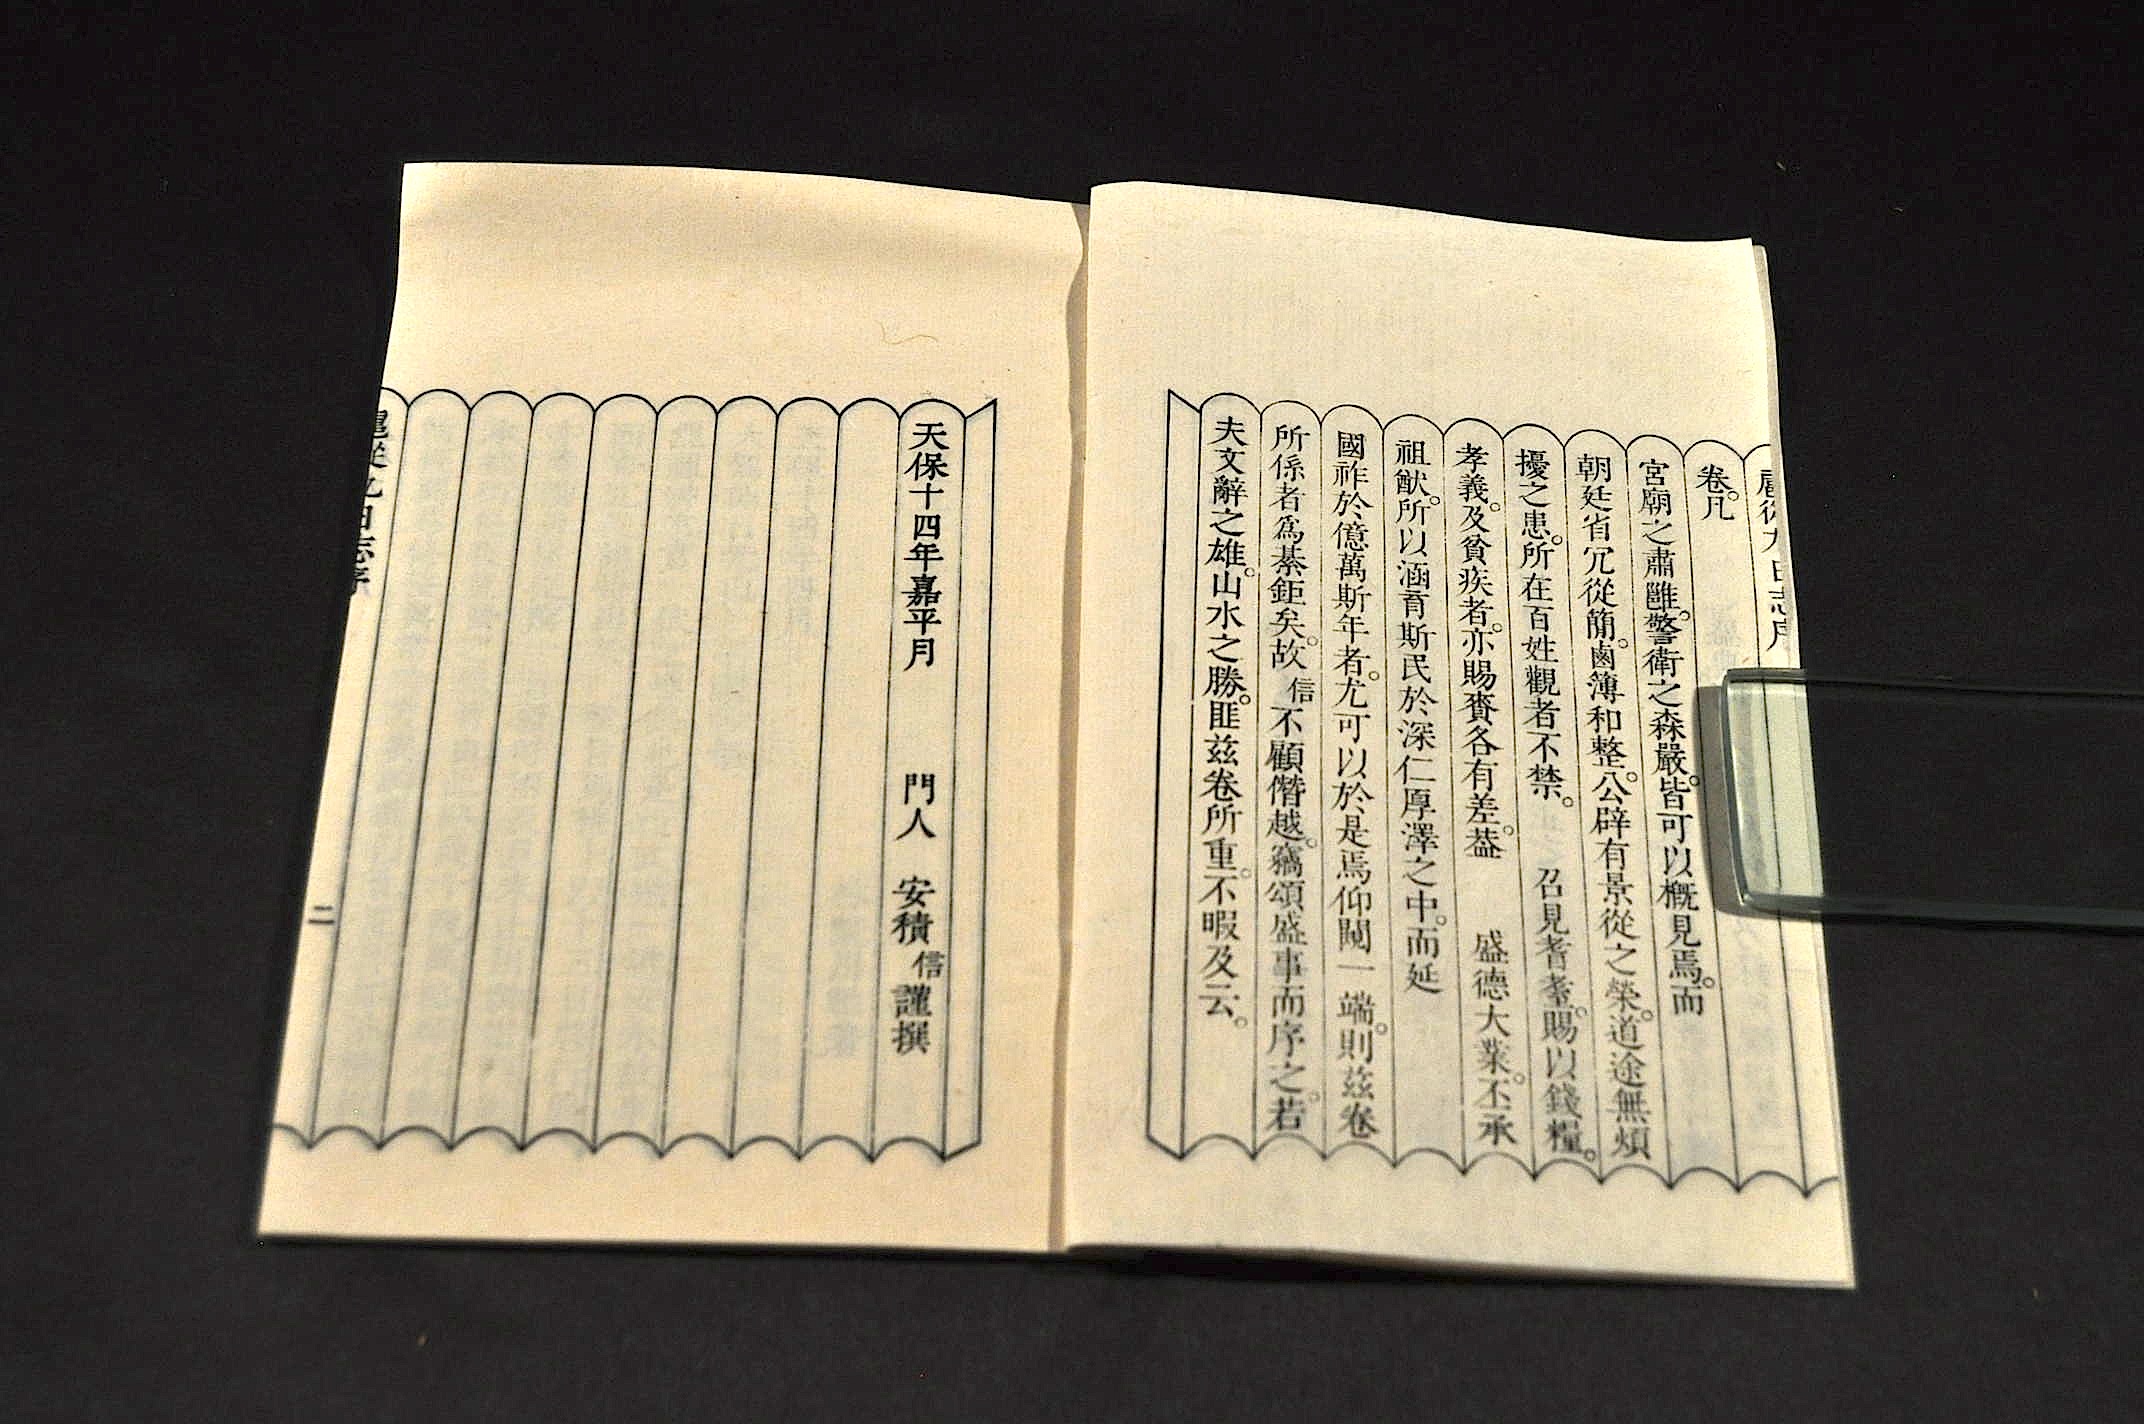 扈從九日志序
卷。凡
宮廟之肅雝。警衛之森嚴。皆可以槪見焉。而
朝廷省冗從簡。鹵簿和整。公辟有景從之榮。道途無煩
擾之患。所在百姓觀者不禁。召見耆耋。賜以錢糧。
孝義。及貧疾者。亦賜賚各有差。葢 盛德大業。丕承
祖猷。所以涵育斯民於深仁厚澤之中。而延
國祚於億萬斯年者。尤可以於是焉仰闚一端。則茲卷
所係者爲綦鉅矣。故信不顧僭越。竊頌盛事而序之。若
夫文辭之雄。山水之勝。匪茲卷所重。不暇及云。
天保十四年嘉平月 門人 安積信謹撰
扈從九日志序
二